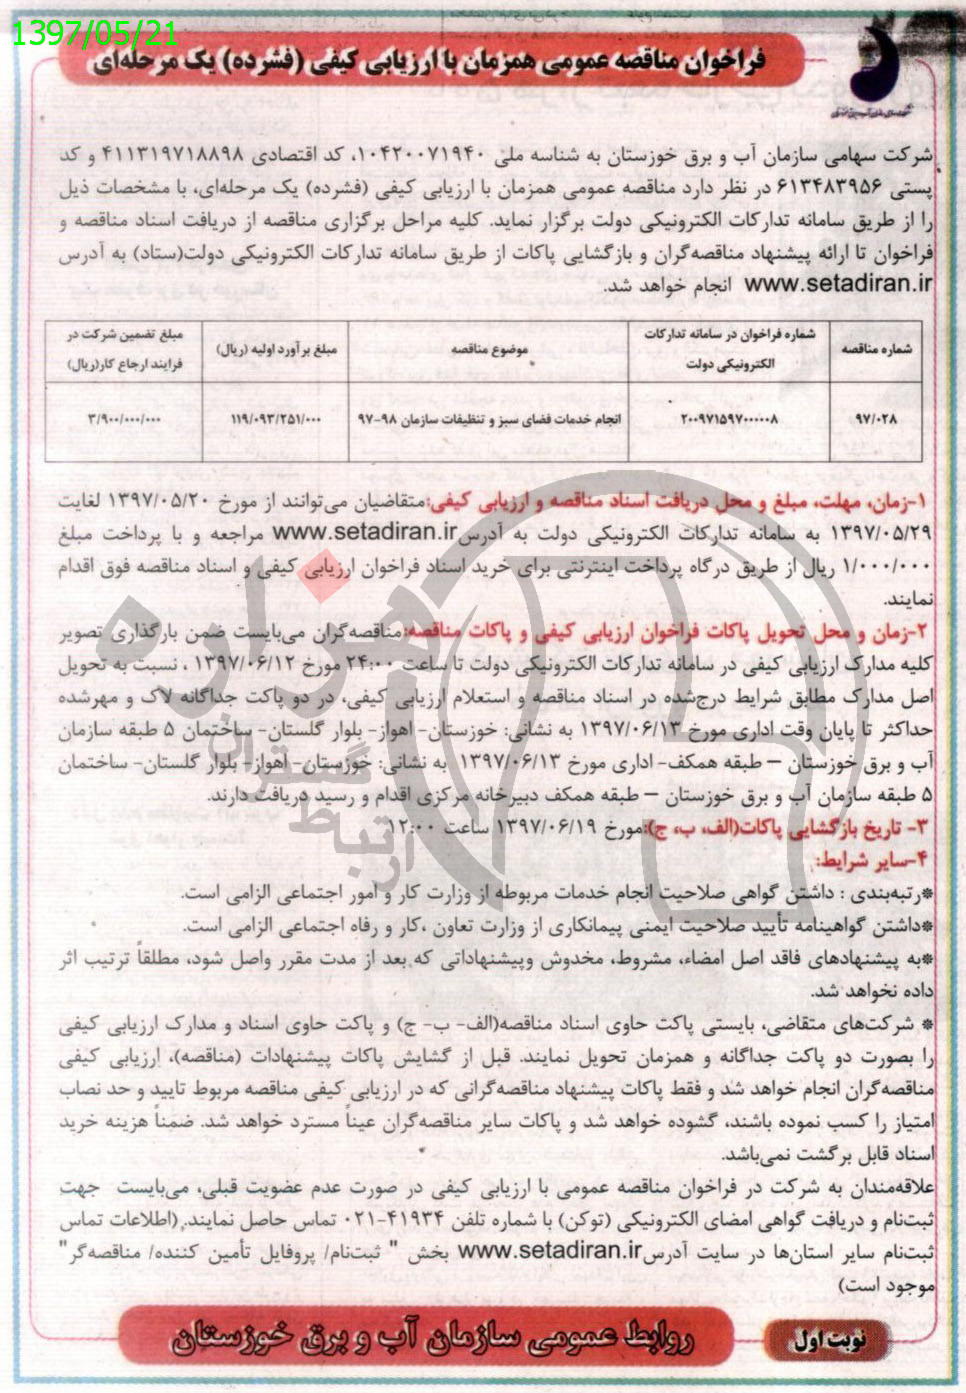 1397/05/21
فراخوان مناقصه عمومی همزمان با ارزیابی کیفی (فشرده) یک مرحله‌ای
شرکت سهامی سازمان آب و برق خوزستان به شناسه ملی ۱۰۴۲۰۰۷۱۹۴۰، کد اقتصادی ۴۱۱۳۱۹۷۱۸۸۹۸ و کد
پستی ۶۱۳۴۸۳۹۵۶ در نظر دارد مناقصه عمومی همزمان با ارزیابی کیفی (فشرده) یک مرحله‌ای، با مشخصات ذیل
را از طریق سامانه تدارکات الکترونیکی دولت برگزار نماید. کلیه مراحل برگزاری مناقصه از دریافت اسناد مناقصه و
فراخوان تا ارائه پیشنهاد مناقصه‌گران و بازگشایی پاکات از طریق سامانه تدارکات الکترونیکی دولت(ستاد) به آدرس
www.setadiran.ir انجام خواهد شد.
شماره مناقصه | شماره فراخوان در سامانه تدارکات الکترونیکی دولت | موضوع مناقصه | مبلغ برآورد اولیه (ریال) | مبلغ تضمین شرکت در فرایند ارجاع کار(ریال)
۹۷/۰۲۸ | ۲۰۰۹۷۱۵۹۷۰۰۰۰۰۸ | انجام خدمات فضای سبز و تنظیفات سازمان ۹۸-۹۷ | ۱۱۹/۰۹۳/۲۵۱/۰۰۰ | ۳/۹۰۰/۰۰۰/۰۰۰
۱-زمان، مهلت، مبلغ و محل دریافت اسناد مناقصه و ارزیابی کیفی:متقاضیان می‌توانند از مورخ ۱۳۹۷/۰۵/۲۰ لغایت
۱۳۹۷/۰۵/۲۹ به سامانه تدارکات الکترونیکی دولت به آدرسwww.setadiran.ir مراجعه و با پرداخت مبلغ
۱/۰۰۰/۰۰۰ ریال از طریق درگاه پرداخت اینترنتی برای خرید اسناد فراخوان ارزیابی کیفی و اسناد مناقصه فوق اقدام
نمایند.
۲-زمان و محل تحویل پاکات فراخوان ارزیابی کیفی و پاکات مناقصه:مناقصه‌گران می‌بایست ضمن بارگذاری تصویر
کلیه مدارک ارزیابی کیفی در سامانه تدارکات الکترونیکی دولت تا ساعت ۲۴:۰۰ مورخ ۱۳۹۷/۰۶/۱۲ ، نسبت به تحویل
اصل مدارک مطابق شرایط درج‌شده در اسناد مناقصه و استعلام ارزیابی کیفی، در دو پاکت جداگانه لاک و مهرشده
حداکثر تا پایان وقت اداری مورخ ۱۳۹۷/۰۶/۱۳ به نشانی: خوزستان- اهواز- بلوار گلستان- ساختمان ۵ طبقه سازمان
آب و برق خوزستان – طبقه همکف- اداری مورخ ۱۳۹۷/۰۶/۱۳ به نشانی: خوزستان- اهواز- بلوار گلستان- ساختمان
۵ طبقه سازمان آب و برق خوزستان – طبقه همکف دبیرخانه مرکزی اقدام و رسید دریافت دارند.
۳- تاریخ بازگشایی پاکات(الف، ب، ج):مورخ ۱۳۹۷/۰۶/۱۹ ساعت ۱۲:۰۰
۴-سایر شرایط:
*رتبه‌بندی : داشتن گواهی صلاحیت انجام خدمات مربوطه از وزارت کار و امور اجتماعی الزامی است.
*داشتن گواهینامه تأیید صلاحیت ایمنی پیمانکاری از وزارت تعاون ،کار و رفاه اجتماعی الزامی است.
*به پیشنهادهای فاقد اصل امضاء، مشروط، مخدوش وپیشنهاداتی که بعد از مدت مقرر واصل شود، مطلقاً ترتیب اثر
داده نخواهد شد.
* شرکت‌های متقاضی، بایستی پاکت حاوی اسناد مناقصه(الف- ب- ج) و پاکت حاوی اسناد و مدارک ارزیابی کیفی
را بصورت دو پاکت جداگانه و همزمان تحویل نمایند. قبل از گشایش پاکات پیشنهادات (مناقصه)، ارزیابی کیفی
مناقصه‌گران انجام خواهد شد و فقط پاکات پیشنهاد مناقصه‌گرانی که در ارزیابی کیفی مناقصه مربوط تایید و حد نصاب
امتیاز را کسب نموده باشند، گشوده خواهد شد و پاکات سایر مناقصه‌گران عیناً مسترد خواهد شد. ضمناً هزینه خرید
اسناد قابل برگشت نمی‌باشد.
علاقه‌مندان به شرکت در فراخوان مناقصه عمومی با ارزیابی کیفی در صورت عدم عضویت قبلی، می‌بایست جهت
ثبت‌نام و دریافت گواهی امضای الکترونیکی (توکن) با شماره تلفن ۴۱۹۳۴-۰۲۱ تماس حاصل نمایند. (اطلاعات تماس
ثبت‌نام سایر استان‌ها در سایت آدرسwww.setadiran.ir بخش " ثبت‌نام/ پروفایل تأمین کننده/ مناقصه‌گر"
موجود است)
نوبت اول
روابط عمومی سازمان آب و برق خوزستان
هزاره
ارتباط گستران